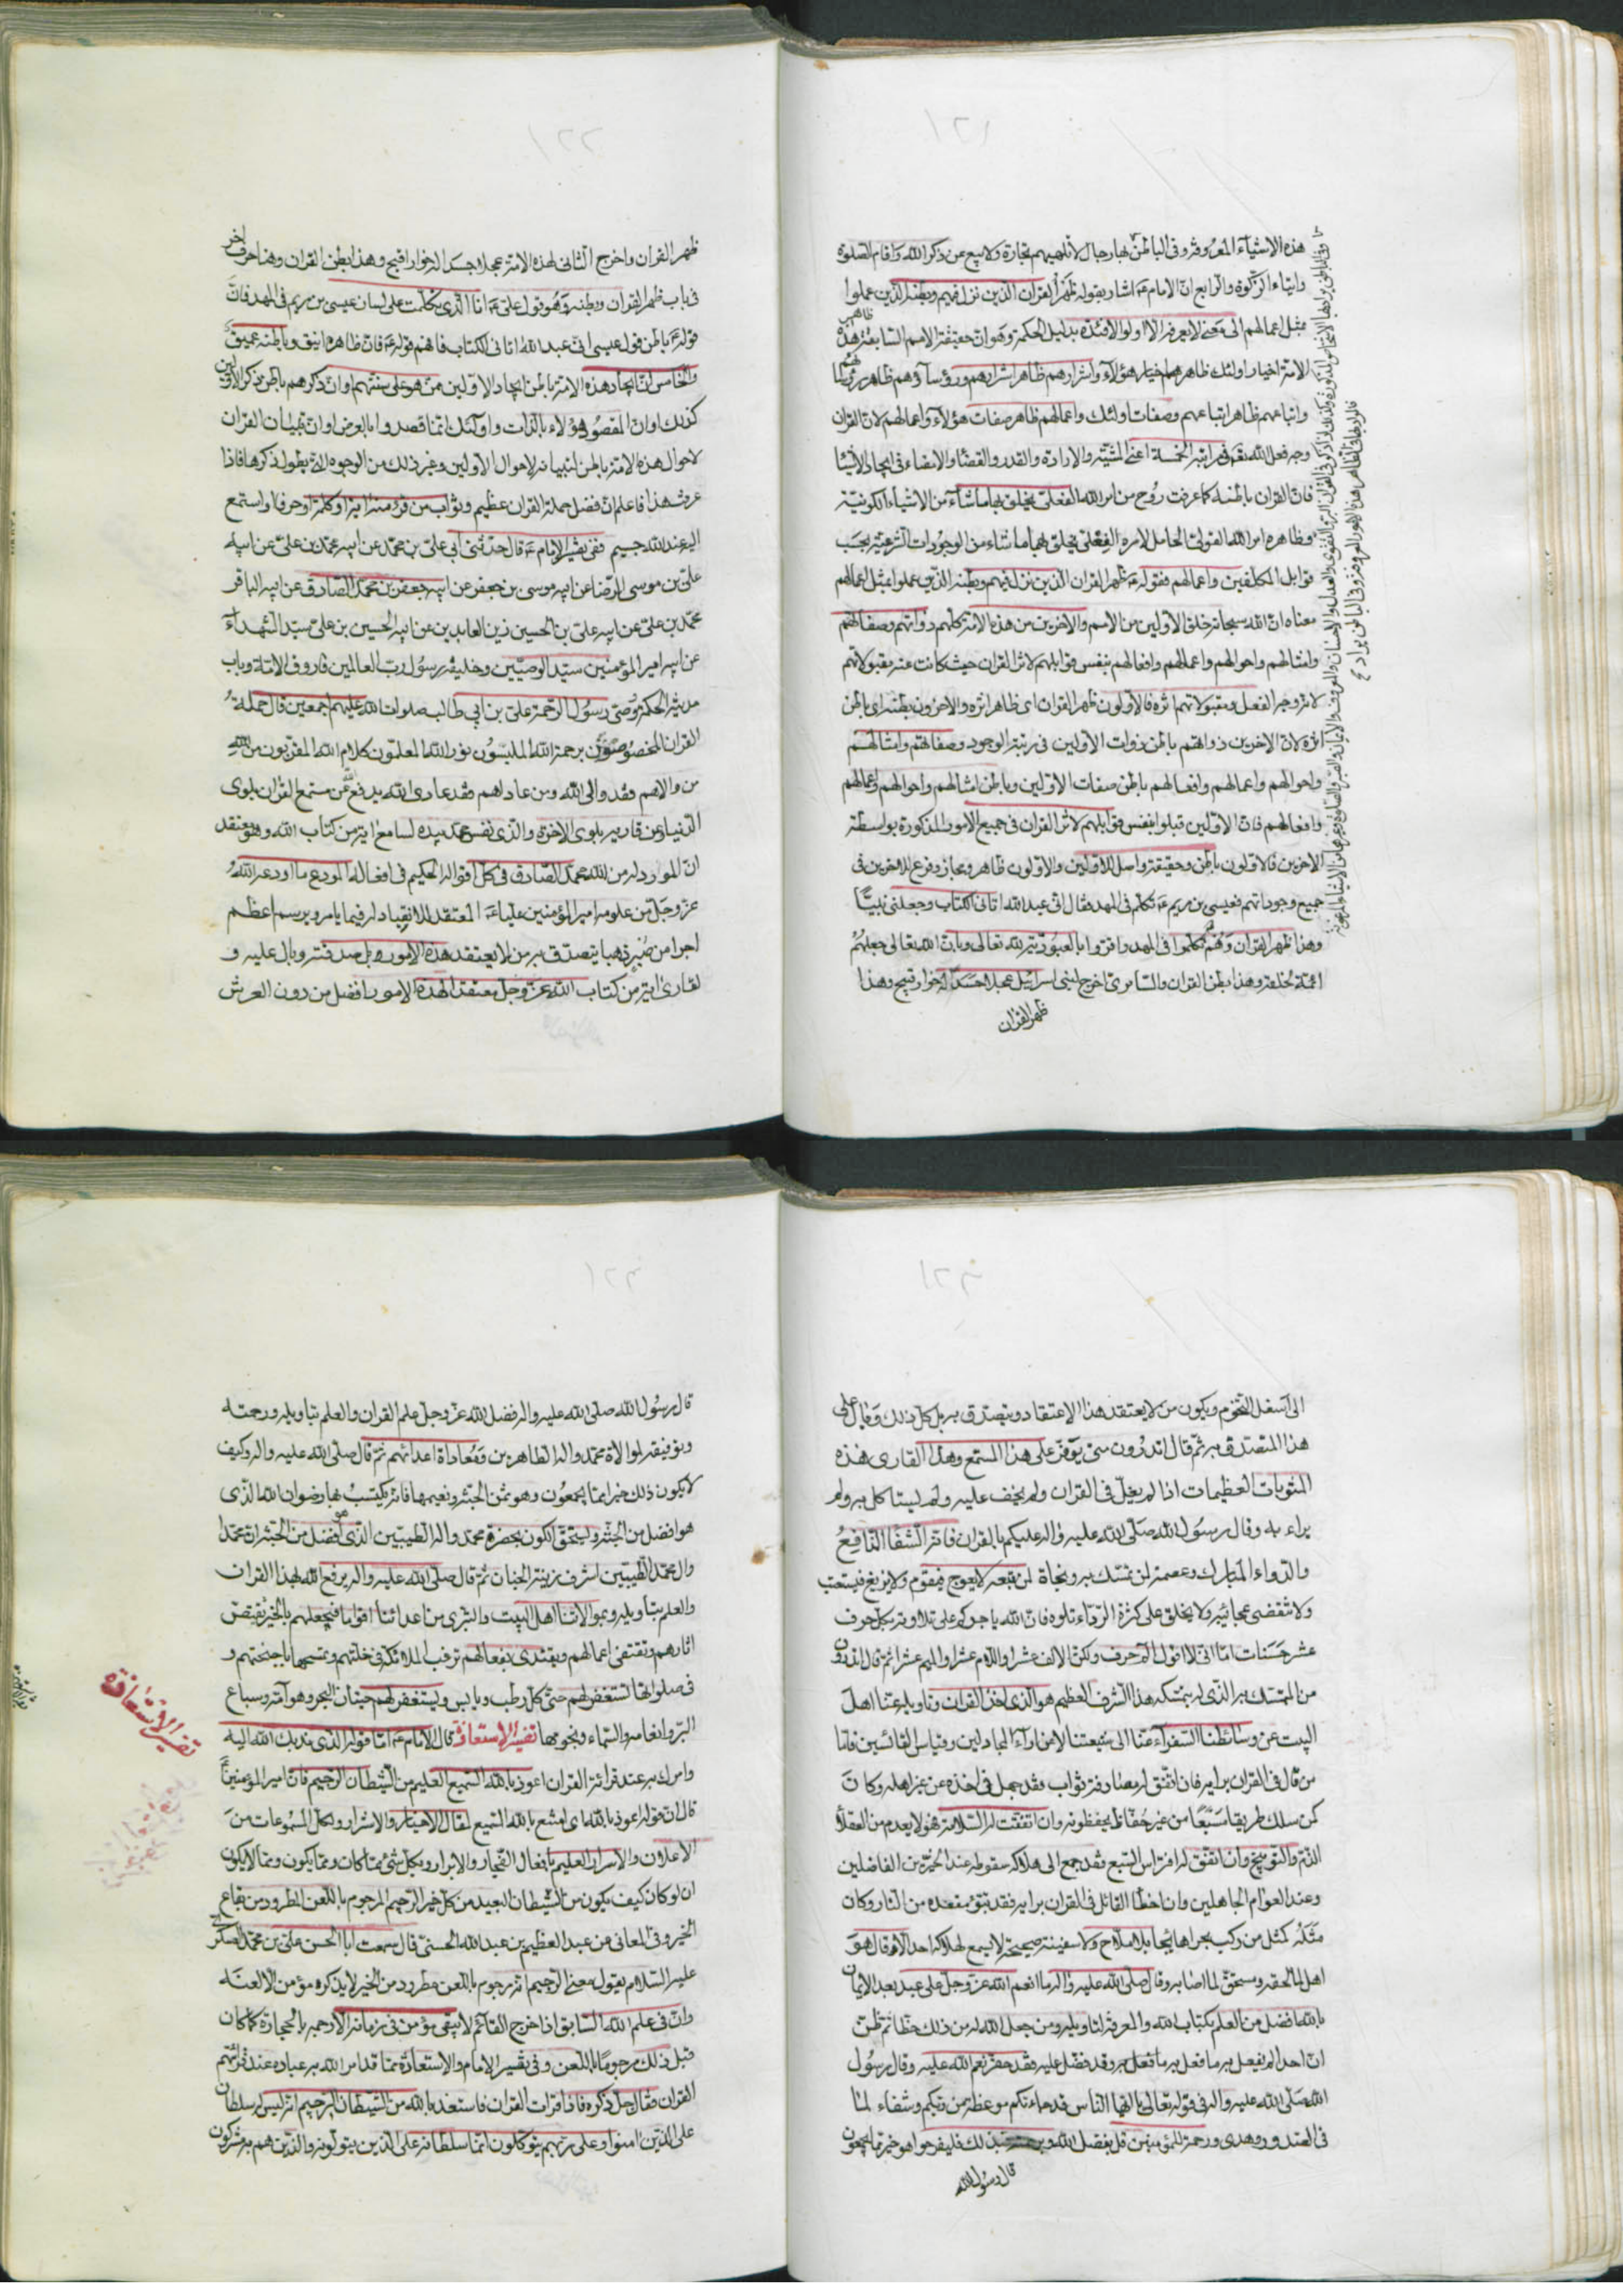 ١٢١
هذه الاشياء المعروفة وفى الباطن بها رجال لا تلهيهم تجارة ولا بيع عن ذكر الله واقام الصلوة
وايتاء الزكوة والرابع ان الامام ع اشار بقوله ظهر القران الذين نزل فيهم وبطنه الذين عملوا
بمثل اعمالهم الى معنى لا يعرفه الا اولوا الافئدة بدليل الحكمة وهو ان حقيقة الامم السابقة هذه
الامة اخيار اولئك ظاهرهم اخيار هؤلاء واشرارهم ظاهر اشرارهم ورؤساؤهم ظاهر رؤسائهم
واتباعهم ظاهر اتباعهم وصفات اولئك واعمالهم ظاهر صفات هؤلاء واعمالهم لان القران
وجه فعل الله تعالى فى مراتبه الخمسة اعنى المشية والارادة والقدر والقضاء والامضاء فى ايجاد الاشياء
فان القران باطنه كما عرفت روح من امر الله الفعلى يخلق بها ما شاء من الاشياء الكونية
وظاهره امر الله القولى الحامل لامره الفعلى يخلق بها ما شاء من الوجودات الشرعية بحسب
قوابل المكلفين واعمالهم فقوله ع ظهر القران الذين نزل فيهم وبطنه الذين عملوا بمثل اعمالهم
معناه ان الله سبحانه خلق الاولين من الامم والاخرين من هذه الامة كلهم ذواتهم وصفاتهم
وامثالهم واحوالهم واعمالهم وافعالهم بنفس قوابلهم لاثر القران حيث كانت عنه مقبولاتهم
لانه وجه الفعل ومقبولاتهم اثره فالاولون ظهر القران اى ظاهر اثره والاخرون بطنه اى باطن
اثره لان الاخرين ذواتهم باطن ذوات الاولين فى رتبة الوجود وصفاتهم وامثالهم
واحوالهم واعمالهم وافعالهم باطن صفات الاولين وباطن امثالهم واحوالهم واعمالهم
وافعالهم فان الاولين قبلوا بنفس قوابلهم لاثر القران فى جميع الامور المذكورة بواسطة
الاخرين فالاخرون باطن وحقيقة واصل للاولين والاولون ظاهر ومجاز وفرع للاخرين فى
جميع وجوداتهم فعيسى بن مريم ع تكلم فى المهد فقال انى عبد الله اتانى الكتاب وجعلنى نبيا
وهذا ظهر القران وهم تكلموا فى المهد واقروا بالعبودية لله تعالى وبان الله تعالى جعلهم
ائمة لخلقه وهذا بطن القران والسامرى اخرج لبنى اسرائيل عجلا جسدا له خوار قبيح وهذا
ظهر القران
١٢٢
ظهر القران واخرج الثانى لهذه الامة عجلا جسدا له خوار اقبح وهذا بطن القران وهنا حرف اخر
فى باب ظهر القران وبطنه وهو قول على ع انا الذى تكلمت على لسان عيسى بن مريم فى المهد فان
قوله ع باطن قول عيسى انى عبد الله اتانى الكتاب فافهم قوله ع فان ظاهره انيق وباطنه عميق
والخامس ان ايجاد هذه الامة باطن ايجاد الاولين ممن هو على سنتهم وان ذكرهم باطن ذكر الاولين
كذلك اوان المقصود هؤلاء بالذات واولئك انما قصدوا بالعرض اوان تبيان القران
لاحوال هذه الامة باطن لتبيانه لاحوال الاولين وغير ذلك من الوجوه التى يطول ذكرها فاذا
عرفت هذا فاعلم ان فضل حملة القران عظيم وثواب من قرء منه اية او كلمة او حرفا او استمع
اليه عند الله جسيم ففى تفسير الامام ع قال حدثنى ابى على بن محمد عن ابيه محمد بن على عن ابيه
على بن موسى الرضا عن ابيه موسى بن جعفر عن ابيه جعفر بن محمد الصادق عن ابيه الباقر
محمد بن على عن ابيه على بن الحسين زين العابدين عن ابيه الحسين بن على سيد الشهداء
عن ابيه امير المؤمنين سيد الوصيين وخليفة رسول رب العالمين فاروق الامة وباب
مدينة الحكمة ووصى رسول الرحمة على بن ابى طالب صلوات الله عليهم اجمعين قال حملة
القران المخصوصون برحمة الله الملبسون نور الله المعلمون كلام الله المقربون من الله
من والاهم فقد والى الله ومن عاداهم فقد عادى الله يدفع الله عن مستمع القران بلوى
الدنيا وعن قاريه بلوى الاخرة والذى نفس محمد بيده لسامع اية من كتاب الله وهو معتقد
ان المورد له من الله محمد الصادق فى كل اقواله الحكيم فى افعاله المودع ما اودعه الله
عز وجل من علومه امير المؤمنين عليا ع المعتقد للانقياد له فيما يامر ويرسم اعظم
اجرا من ثبير ذهبا يتصدق به من لا يعتقد هذه الامور بل صدقته وبال عليه و
لقارئ اية من كتاب الله عز وجل معتقدا لهذه الامور افضل من دون العرش
١٢٣
الى اسفل التخوم ويكون من لا يعتقد هذا الاعتقاد ويتصدق به بل كل ذلك وبال على
هذا المتصدق به ثم قال اتدرون متى يتوفر على هذا المستمع وهذا القارى هذه
المثوبات العظيمات اذا لم يغل فى القران ولم يجف عليه ولم يستاكل به ولم
يراء به وقال رسول الله صلى الله عليه واله عليكم بالقران فانه الشفاء النافع
والدواء المبارك وعصمة لمن تمسك به ونجاة لمن تبعه لا يعوج فيقوم ولا يزيغ فيستعتب
ولا تنقضى عجائبه ولا يخلق على كثرة الرد اتلوه فان الله ياجركم على تلاوته بكل حرف
عشر حسنات اما انى لا اقول الم حرف ولكن الالف عشر واللام عشر والميم عشر ثم قال اتدرون
من المتمسك به الذى له بتمسكه هذا الشرف العظيم هو الذى اخذ القران وتاويله عنا اهل
البيت عن وسائطنا السفراء عنا الى شيعتنا لا عن اراء المجادلين وقياس القائسين فاما
من قال فى القران برايه فان اتفق له مصادفة ثواب فقد جهل فى اخذه عن غير اهله وكان
كمن سلك طريقا مسبعا من غير حفاظ يحفظونه وان اتفقت له السلامة فهو لا يعدم من العقلاء
الذم والتوبيخ وان اتفق له افتراس السبع فقد جمع الى هلاكه سقوطه عند الخيرة من الفاضلين
وعند العوام الجاهلين وان اخطا القائل فى القران برايه فقد تبوء مقعده من النار وكان
مثله كمثل من ركب بحرا هائجا بلا ملاح ولا سفينة صحيحة لا يسمع لهلاكه احد الا قال هو
اهل لما لحقه ومستحق لما اصابه وقال صلى الله عليه واله ما انعم الله عز وجل على عبد بعد الايمان
بالله افضل من العلم بكتاب الله والمعرفة بتاويله ومن جعل الله له من ذلك حظا ثم ظن
ان احدا لم يفعل به ما فعل به وقد فضل عليه فقد حقر نعم الله عليه وقال رسول
الله صلى الله عليه واله فى قوله تعالى يا ايها الناس قد جاءتكم موعظة من ربكم وشفاء لما
فى الصدور وهدى ورحمة للمؤمنين قل بفضل الله وبرحمته فبذلك فليفرحوا هو خير مما يجمعون
قال رسول الله
١٢٤
قال رسول الله صلى الله عليه واله فضل الله عز وجل علم القران والعلم بتاويله ورحمته
وتوفيقه لموالاة محمد واله الطاهرين ومعاداة اعدائهم ثم قال صلى الله عليه واله وكيف
لا يكون ذلك خيرا مما يجمعون وهو ثمن الجنة ونعيمها فانه يكتسب بها رضوان الله الذى
هو افضل من الجنة ويستحق الكون بحضرة محمد واله الطيبين الذى هو افضل من الجنة ان محمدا
وال محمد الطيبين اشرف زينة الجنان ثم قال صلى الله عليه واله يرفع الله بهذا القران
والعلم بتاويله وبموالاتنا اهل البيت والتبرى من اعدائنا اقواما فيجعلهم بالخير تقتص
اثارهم وتقتفى اعمالهم ويقتدى بفعالهم ترغب الملائكة فى خلتهم وتمسحها باجنحتهم و
فى صلواتها تستغفر لهم حتى كل رطب ويابس ويستغفر لهم حيتان البحر وهوامه وسباع
البر وانعامه والسماء ونجومها تفسير الاستعاذة قال الامام ع اما قوله الذى ندبك الله اليه
وامرك به عند قرائة القران اعوذ بالله السميع العليم من الشيطان الرجيم فان امير المؤمنين ع
قال ان قوله اعوذ بالله اى امتنع بالله السميع لمقال الاخيار والاشرار ولكل المسموعات من
الاعلان والاسرار العليم بافعال الفجار والابرار وبكل شئ مما كان ومما يكون ومما لا يكون
ان لو كان كيف يكون من الشيطان البعيد من كل خير الرجيم المرجوم باللعن المطرود من بقاع
الخير وفى المعانى عن عبد العظيم بن عبد الله الحسنى قال سمعت ابا الحسن على بن محمد العسكرى
عليه السلام يقول معنى الرجيم انه مرجوم باللعن مطرود من الخير لا يذكره مؤمن الا لعنه
وان فى علم الله السابق اذا خرج القائم لا يبقى مؤمن فى زمانه الا رجمه بالحجارة كما كان
قبل ذلك مرجوما باللعن وفى تفسير الامام والاستعاذة مما قد امر الله به عباده عند قرائتهم
القران فقال جل ذكره فاذا قرات القران فاستعذ بالله من الشيطان الرجيم انه ليس له سلطان
على الذين امنوا وعلى ربهم يتوكلون انما سلطانه على الذين يتولونه والذين هم به مشركون
تفسير الاستعاذة